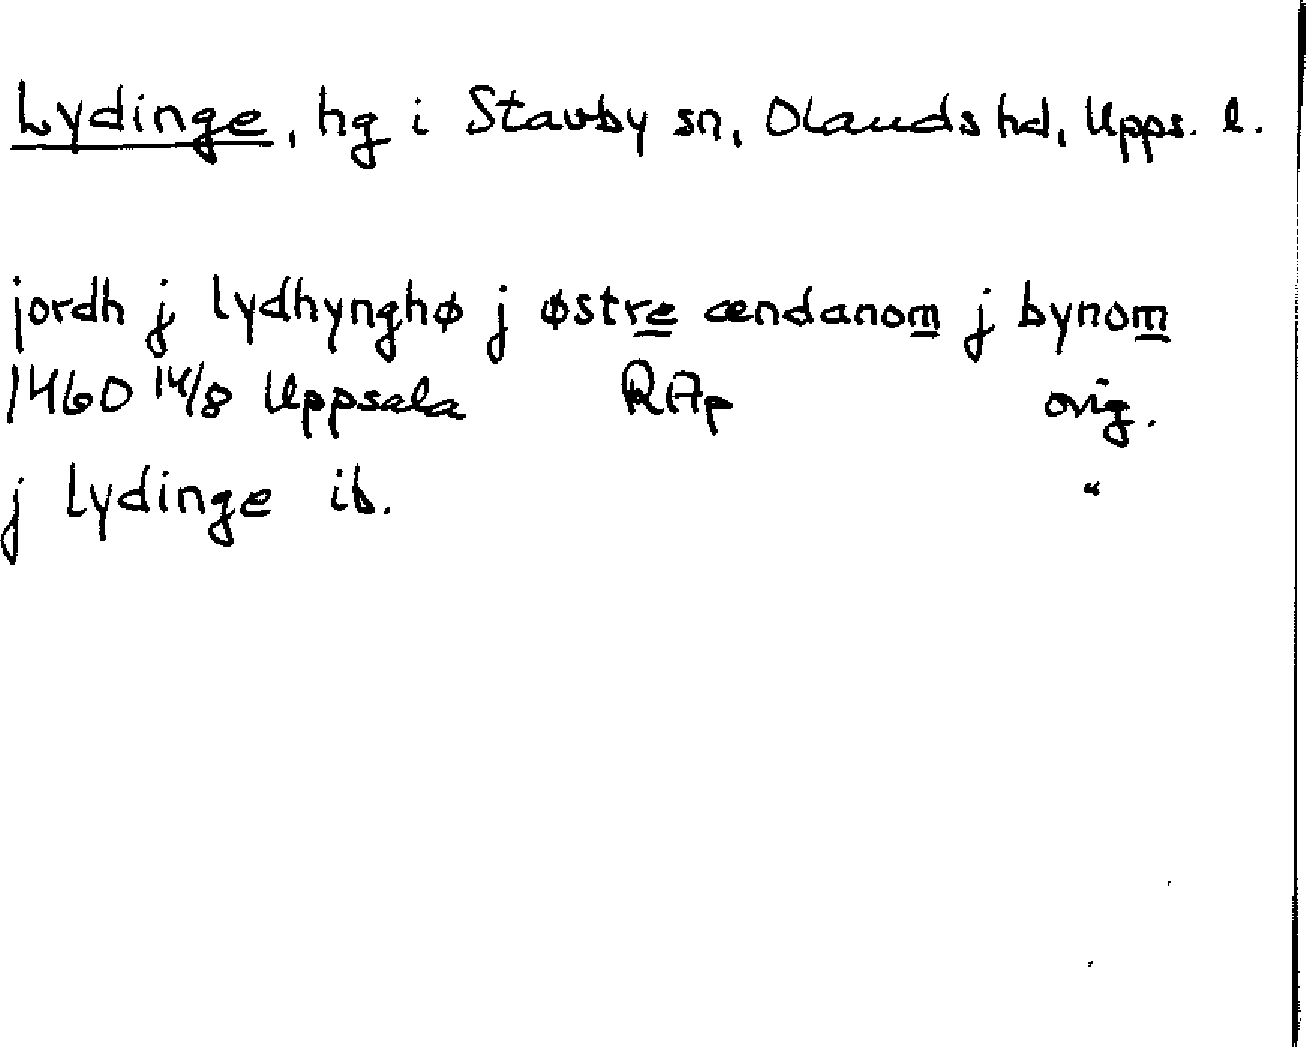 Lydinge, hg i Stavby sn, Olands hd, Upps. l.
jordh j lydhynghø j østre ændanom j bynom
1460 14/8 Uppsala RAp orig.
j Lydinge ib. "